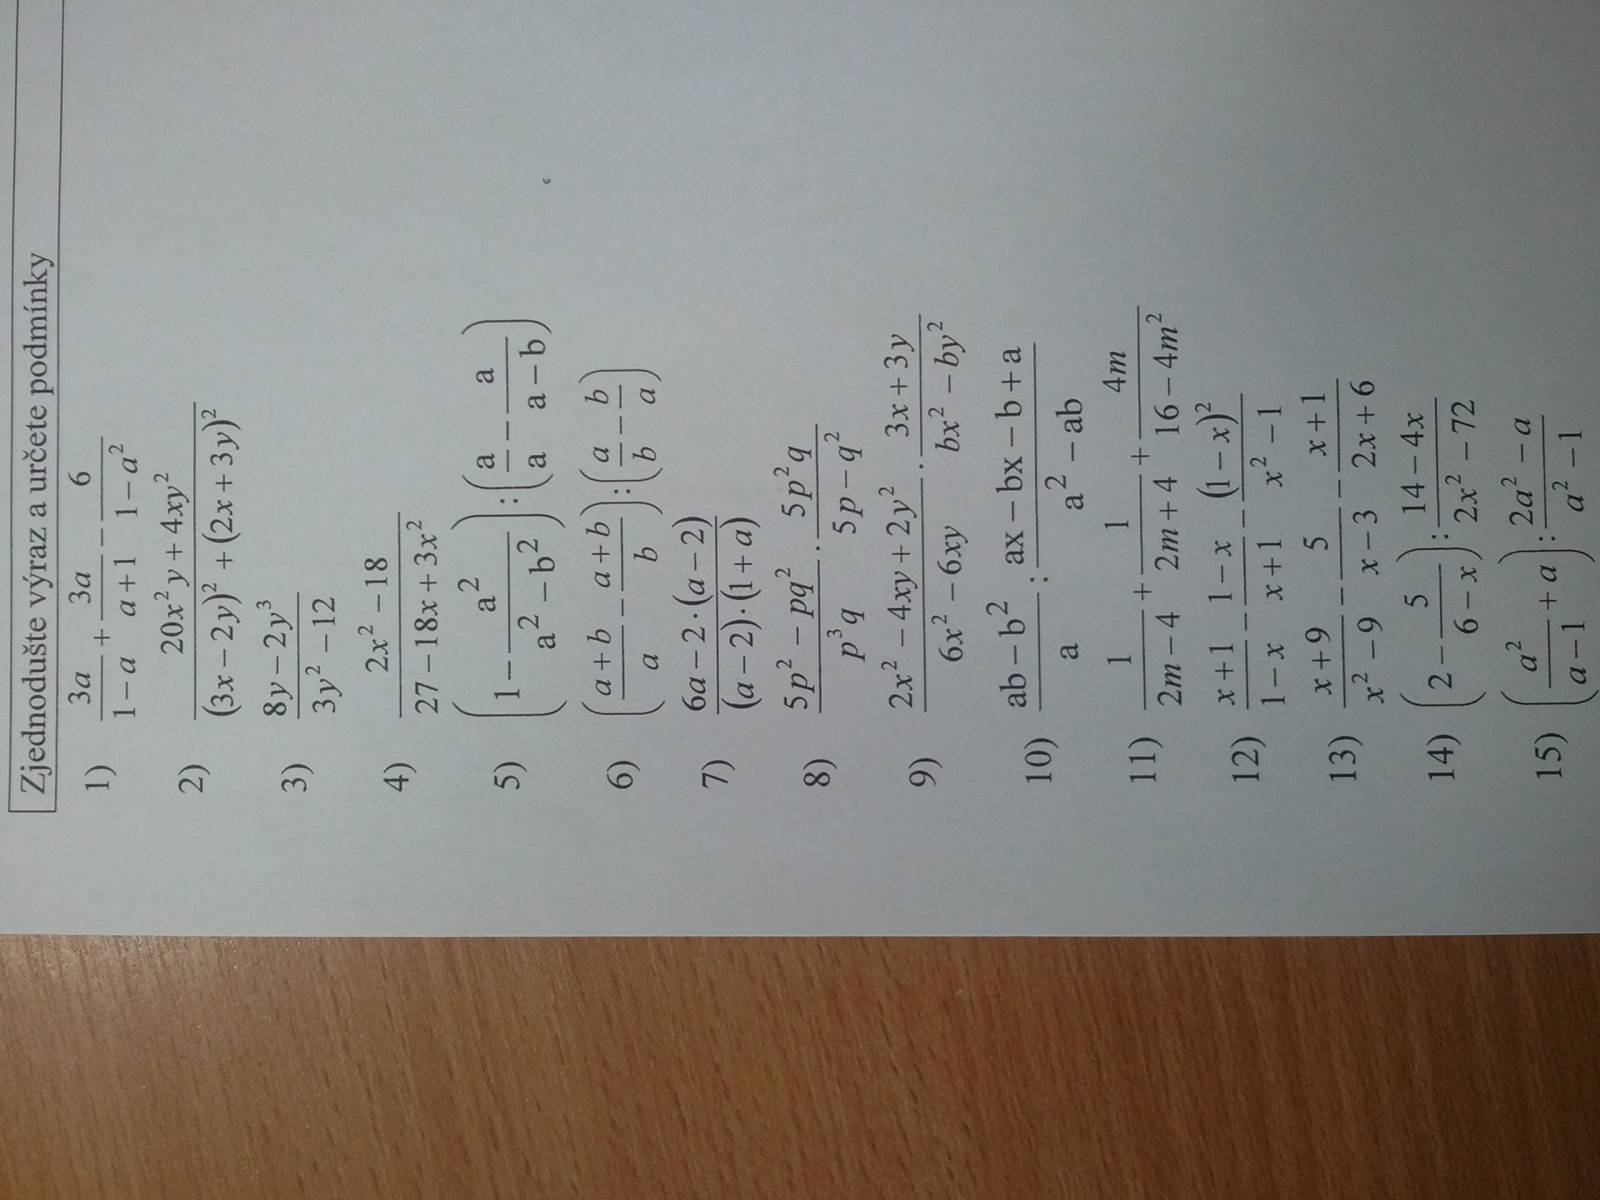 Zjednodušte výraz a určete podmínky
1) \frac{3a}{1-a} + \frac{3a}{a+1} - \frac{6}{1-a^2}
2) \frac{20x^2y+4xy^2}{(3x-2y)^2+(2x+3y)^2}
3) \frac{8y-2y^3}{3y^2-12}
4) \frac{2x^2-18}{27-18x+3x^2}
5) \left(1-\frac{a^2}{a^2-b^2}\right):\left(\frac{a}{a}-\frac{a}{a-b}\right)
6) \left(\frac{a+b}{a}-\frac{a+b}{b}\right):\left(\frac{a}{b}-\frac{b}{a}\right)
7) \frac{6a-2\cdot(a-2)}{(a-2)\cdot(1+a)}
8) \frac{5p^2-pq^2}{p^3q}\cdot\frac{5p^2q}{5p-q^2}
9) \frac{2x^2-4xy+2y^2}{6x^2-6xy}\cdot\frac{3x+3y}{bx^2-by^2}
10) \frac{ab-b^2}{a}:\frac{ax-bx-b+a}{a^2-ab}
11) \frac{1}{2m-4}+\frac{1}{2m+4}+\frac{4m}{16-4m^2}
12) \frac{x+1}{1-x}-\frac{1-x}{x+1}-\frac{(1-x)^2}{x^2-1}
13) \frac{x+9}{x^2-9}-\frac{5}{x-3}-\frac{x+1}{2x+6}
14) \left(2-\frac{5}{6-x}\right):\frac{14-4x}{2x^2-72}
15) \left(\frac{a^2}{a-1}+a\right):\frac{2a^2-a}{a^2-1}